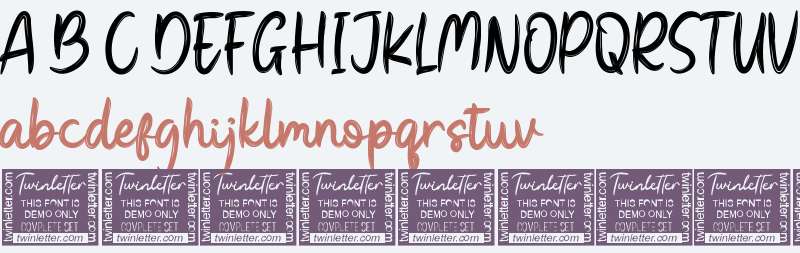 A B C DEFGHIJKLMNOPQRSTUV
abcdefghijklmnopqrstuv
twinletter.com Twinletter twinletter.com
THIS FONT IS
DEMO ONLY
COMPLETE SET
twinletter.com
twinletter.com Twinletter twinletter.com
THIS FONT IS
DEMO ONLY
COMPLETE SET
twinletter.com
twinletter.com Twinletter twinletter.com
THIS FONT IS
DEMO ONLY
COMPLETE SET
twinletter.com
twinletter.com Twinletter twinletter.com
THIS FONT IS
DEMO ONLY
COMPLETE SET
twinletter.com
twinletter.com Twinletter twinletter.com
THIS FONT IS
DEMO ONLY
COMPLETE SET
twinletter.com
twinletter.com Twinletter twinletter.com
THIS FONT IS
DEMO ONLY
COMPLETE SET
twinletter.com
twinletter.com Twinletter twinletter.com
THIS FONT IS
DEMO ONLY
COMPLETE SET
twinletter.com
twinletter.com Twinletter
THIS FONT IS
DEMO ONLY
COMPLETE SET
twinletter.com